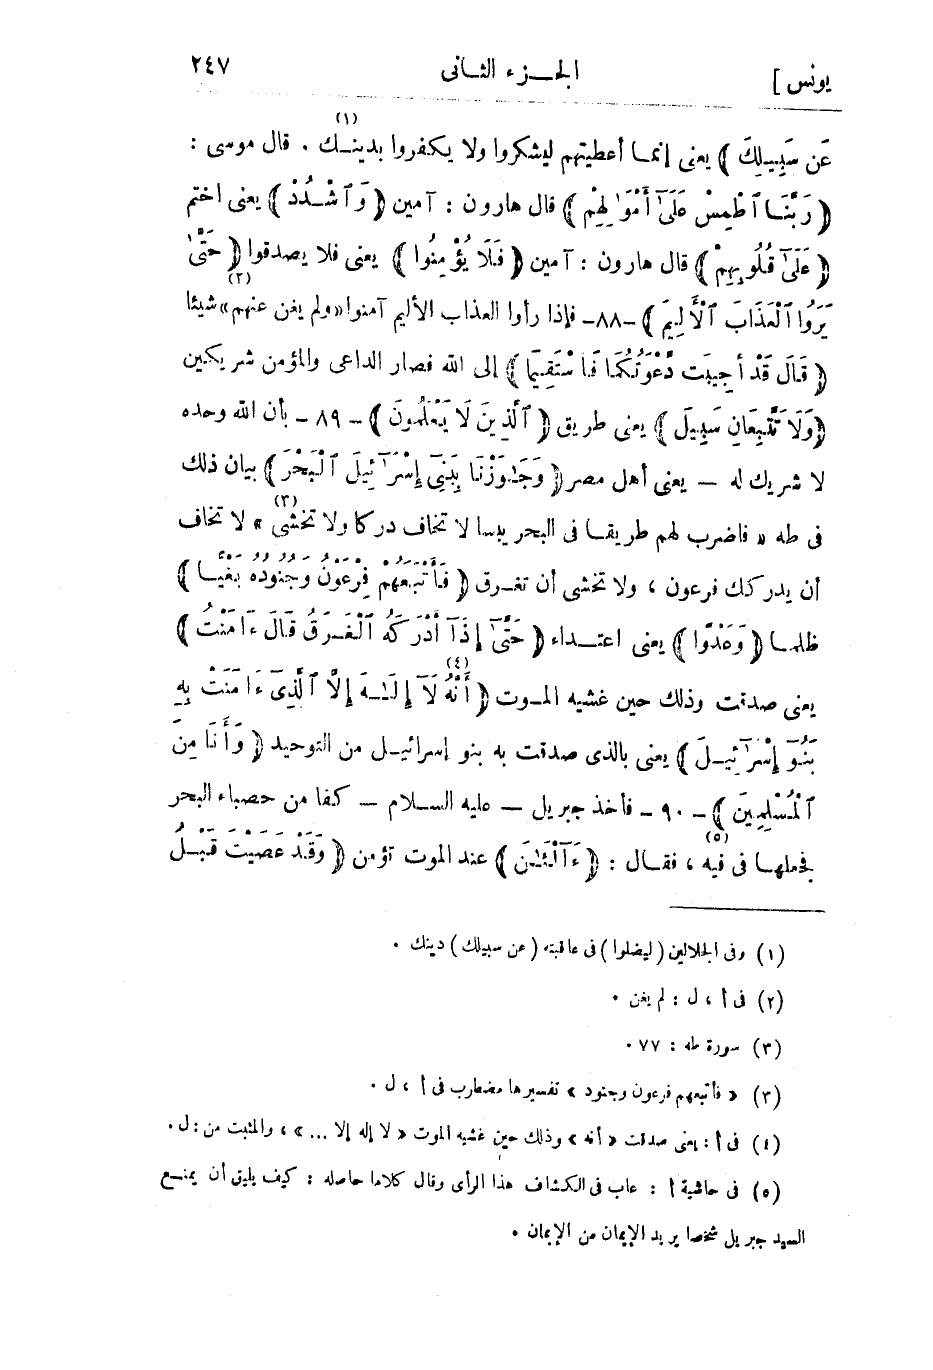 يونس ] الجـــزء الثــانى ٢٤٧
عَن سَبِيــلِكَ ﴾ يعنى إنمــا أعطيتهم ليشكروا ولا يكفروا بدينــك (١) . قال موسى :
﴿ رَبَّنَــا ٱطْمِسْ عَلَىٰٓ أَمْوَٰلِهِمْ ﴾ قال هارون : آمين ﴿ وَٱشْــدُدْ ﴾ يعنى اختم
﴿ عَلَىٰ قُلُوبِهِمْ ﴾ قال هارون : آمين ﴿ فَلَا يُؤْمِنُوا ﴾ يعنى فلا يصدقوا ﴿ حَتَّىٰ
يَرَوُا ٱلْعَذَابَ ٱلْأَلِيمَ ﴾ -٨٨- فإذا رأوا العذاب الأليم آمنوا «ولم يغن عنهم» (٢) شيئا
﴿ قَالَ قَدْ أُجِيبَت دَّعْوَتُكُمَا فَٱسْتَقِيمَا ﴾ إلى الله فصار الداعى والمؤمن شريكين
﴿ وَلَا تَتَّبِعَانِ سَبِيلَ ﴾ يعنى طريق ﴿ ٱلَّذِينَ لَا يَعْلَمُونَ ﴾ - ٨٩ - بأن الله وحده
لا شريك له — يعنى أهل مصر ﴿ وَجَٰوَزْنَا بِبَنِىٓ إِسْرَٰٓءِيلَ ٱلْبَحْرَ ﴾ بيان ذلك
فى طه « فاضرب لهم طريقــا فى البحر يبسا لا تخاف دركا ولا تخشى (٣) » لا تخاف
أن يدركك فرعون ، ولا تخشى أن تغــرق ﴿ فَأَتْبَعَهُمْ فِرْعَوْنُ وَجُنُودُهُ بَغْيًــا ﴾
ظلمــا ﴿ وَعَدْوًا ﴾ يعنى اعتــداء ﴿ حَتَّىٰٓ إِذَآ أَدْرَكَهُ ٱلْغَــرَقُ قَالَ ءَامَنْتُ ﴾
يعنى صدقت وذلك حين غشيه المــوت ﴿ أَنَّهُ (٤) لَآ إِلَــٰهَ إِلَّا ٱلَّذِىٓ ءَامَنَتْ بِهِ
بَنُوٓ إِسْرَٰٓءِيــلَ ﴾ يعنى بالذى صدقت به بنو إسرائيــل من التوحيد ﴿ وَأَنَا مِنَ
ٱلْمُسْلِمِينَ ﴾ - ٩٠ - فأخذ جبريل — عليه الســلام — كفا من حصباء البحر
فجعلهــا فى فيه (٥) ، فقــال : ﴿ ءَآلْـَٰٔنَ ﴾ عند الموت تؤمن ﴿ وَقَدْ عَصَيْتَ قَبْــلُ
(١) وفى الجلالين ( ليضلوا ) فى عاقبته ( عن سبيلك ) دينك .
(٢) فى أ ، ل : لم يغن .
(٣) سورة طه : ٧٧ .
(٣) « فأتبعهم فرعون وجنود » تفسيرها مضطرب فى أ ، ل .
(٤) فى أ : يعنى صدقت « أنه » وذلك حين غشيه الموت « لا إله إلا ... » ، والمثبت من : ل .
(٥) فى حاشية أ : عاب فى الكشاف هذا الرأى وقال كلاما حاصله : كيف يليق أن يمنــع
السيد جبريل شخصا يريد الإيمان من الإيمان .